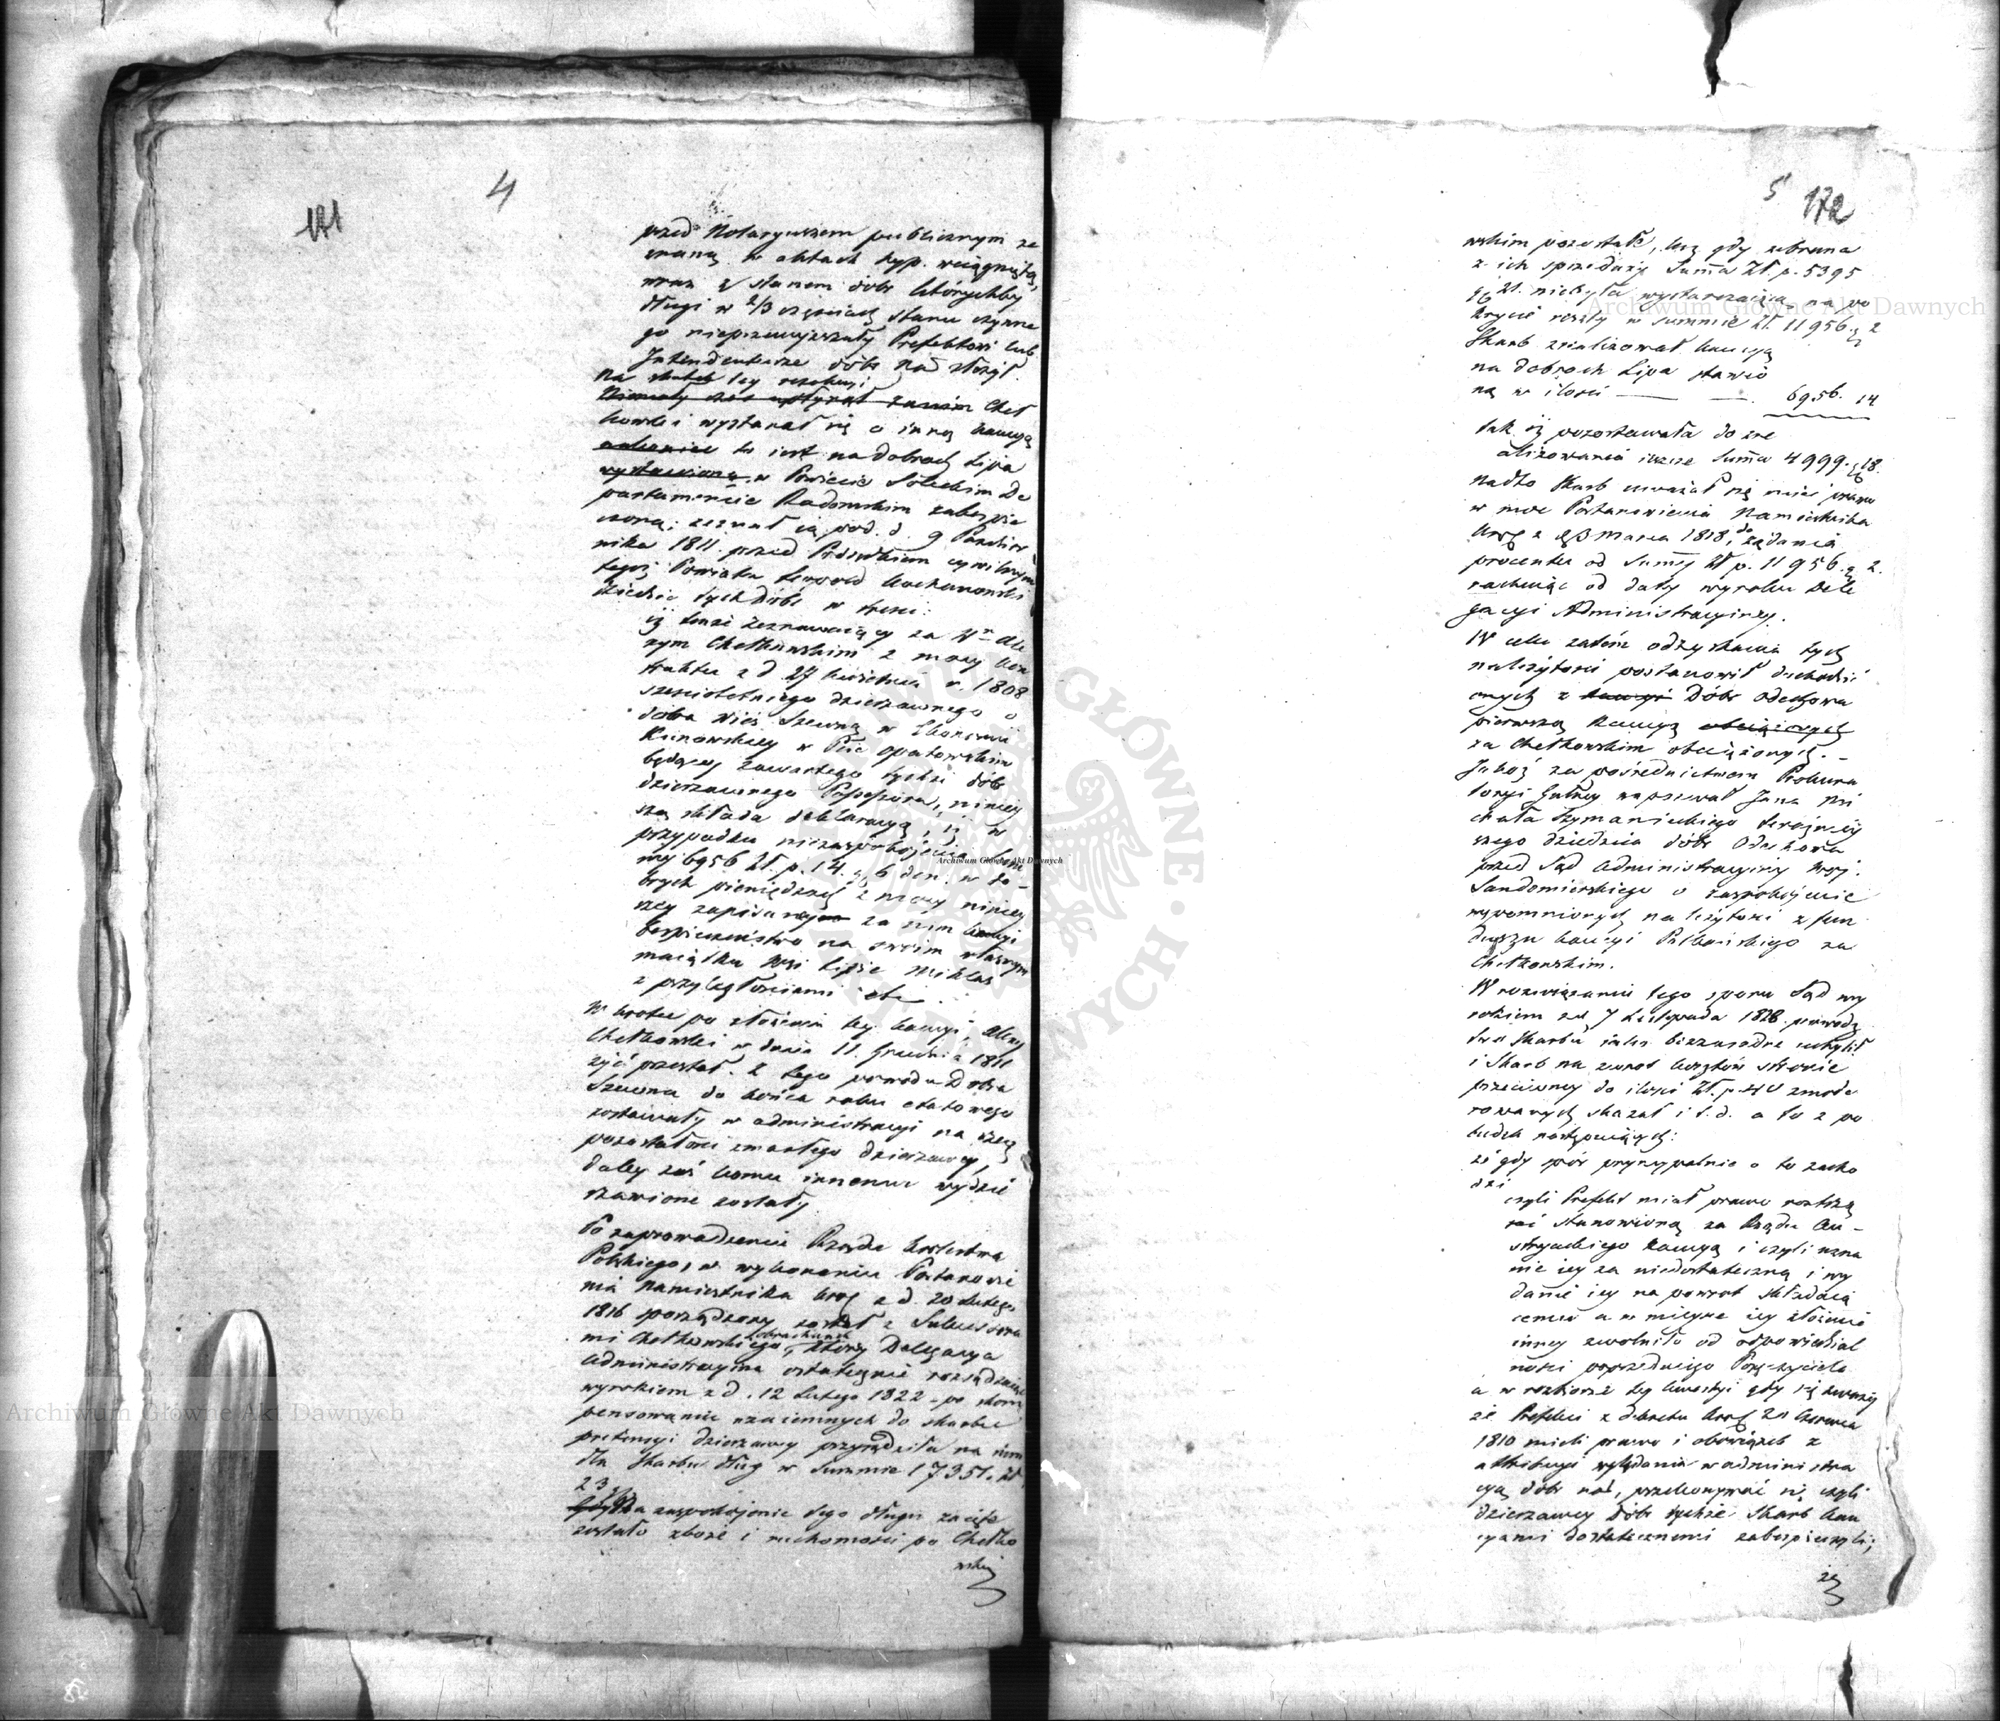 4
171
przed Notaryuszem publicznym ze
znaną w aktach hyp. wciągniętą,
wraz z stanem dóbr którychby
długi w 2/3 częściach stanu czynne
go nieprzewyższały Prefektowi lub
Intendenturze dóbr Nar złożył.
Na skutek tey rezolucyi
Cheł
kowski wystarał się o inną kaucyą
to iest na dobrach Lipa
wystawioną w Powiecie Soleckim De
partamencie Radomskim zabezpie
czoną; zeznał ią pod d. 9 Paździer
nika 1811 przed Podsędkiem cywilnym
tegoż Powiatu Leopold Kochanowski
dziedzic tych dóbr w treści:
iż tenże zeznawaiący za Ur Ale
xym Chełkowskim z mocy kon
traktu z d 27 kwietnia r. 1808
sześcioletniego dzierzawnego o
dobra wieś Szewną w Ekonomii
Kunowskiey w Pcie opatowskim
będącey zawartego tychże dób
dzierzawnego Possessora, niniey
szą składa deklaracyą, iż w
przypadku niezaspokojenia Sum
my 6956 Zł. p. 14. g 6 den. w do
brych pieniędzach z mocy niniey
szey zapisaney za nim kaucyi
bezpieczeństwo na swoim własnym
maiątku Wsi Lipie Miklas
z przyległościami etc
W krótce po złożeniu tey kaucyi, Alexy
Chełkowski w dniu 11. Grudnia 1811
żyć przestał. Z tego powodu Dobra
Szewna do końca roku etatowego
zostawały w administracyi na rzecz
pozostałości zmarłego dzierzawcy,
daley zaś komu innemu wydzier
żawione zostały
Po zaprowadzeniu Rządu Królestwa
Polskiego, w wykonaniu Postanowie
nia Namiestnika Król z d. 20 Lutego
1816 sporządzony został z Sukcessora
mi Chełkowskiego obrachunek, który Delegacya
administracyina ostatecznie rozsądziwszy
wyrokiem z d. 12 Lutego 1822 po skom
pensowaniu wzaiemnych do skarbu
pretensyi dzierzawcy przysądziła na nim
dla Skarbu dług w Summie 17351. zł.
23
Na zaspokojenie tego długu zaięte
zostało zboże i ruchomości po Chełko
wskim
5
172
wskim pozostałe, lecz gdy zebrana
z ich sprzedaży Summa Zł. p. 5395
g 21. niebyła wystarczaiącą na po
krycie reszty w summie Zł. 11956. g 2
Skarb zrealizował kaucyą
na dobrach Lipa stawio
ną w ilości — — 6956. 14
tak iż pozostawała do zre
alizowania ieszcze Summa 4999. g 18.
Nadto Skarb uważał się mieć prawo
w moc Postanowienia Namiestnika
Król z d 3 Marca 1818, do żądania
procentu od Summy Zł p. 11956. g 2.
rachuiąc od daty wyroku Dele
gacyi Administracyiney.
W celu zatém odzyskania tych
należytości postanowił dochodzić
onych z kaucyi Dóbr Odechowa
pierwszą Kaucyą obciążonych
za Chełkowskim obciążonych. —
Jakoż za pośrednictwem Prokura
toryi Gralney zapozwał Jana Mi
chała Szymanieckiego teraźniey
szego dziedzica dóbr Odechowa
przed Sąd Administracyiny Woj.
Sandomierskiego o zaspokojenie
wspomnionych należytości z fun
duszu kaucyi za
Chełkowskim.
W rozwiązaniu tego sporu Sąd wy
rokiem z d 7 Listopada 1828. powodz
two Skarbu iako bezzasadne uchylił
i Skarb na zwrot kosztów stronie
przeciwney do ilości Zł. p. 40 zmode
rowanych skazał i t. d. a to z po
budek następuiących:
że gdy spór pryncypalnie o to zacho
dzi
czyli Prefekt miał prawo roztrzą
sać stanowioną za Rządu Au-
stryackiego Kaucyą i czyli uzna
nie iey za niedostateczną i wy
danie iey na powrót składaią
cemu a w mieysce iey złożenie
inney zwolniło od odpowiedzial
ności poprzedniego Poręczyciela
a w rozbiorze tey kwestyi gdy się zważy
że Prefekci z dekretu Król 20 Czerwca
1810 mieli prawo i obowiązek z
attrybucyi wglądania w administra
cyą dóbr nar, przekonywać się czyli
dzierzawcy dóbr tychże Skarb kau
cyami dostatecznemi zabezpieczyli;
że
Archiwum Główne Akt Dawnych
Archiwum Główne Akt Dawnych
Archiwum Główne Akt Dawnych